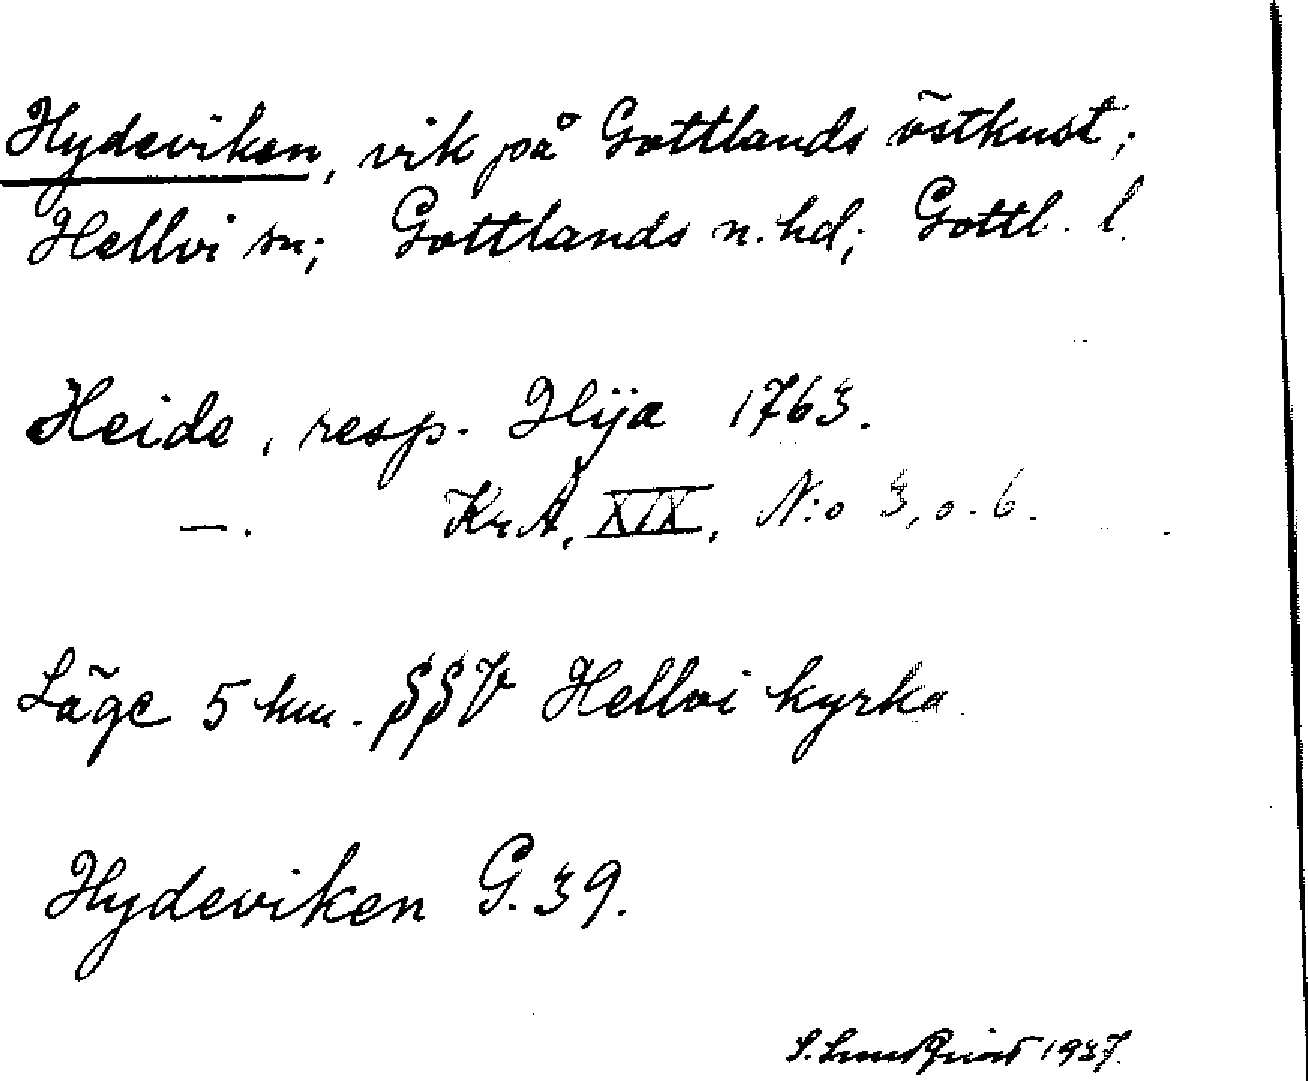 Hydeviken, vik på Gottlands östkust;
Hellvi sn; Gottlands n. hd; Gottl. l.
Heide, resp. Hija 1763.
—. KrA, XIX, N:o 3, o. 6.
Läge 5 km. SSV Hellvi kyrka.
Hydeviken G. 39.
S. Lundqvist 1937.